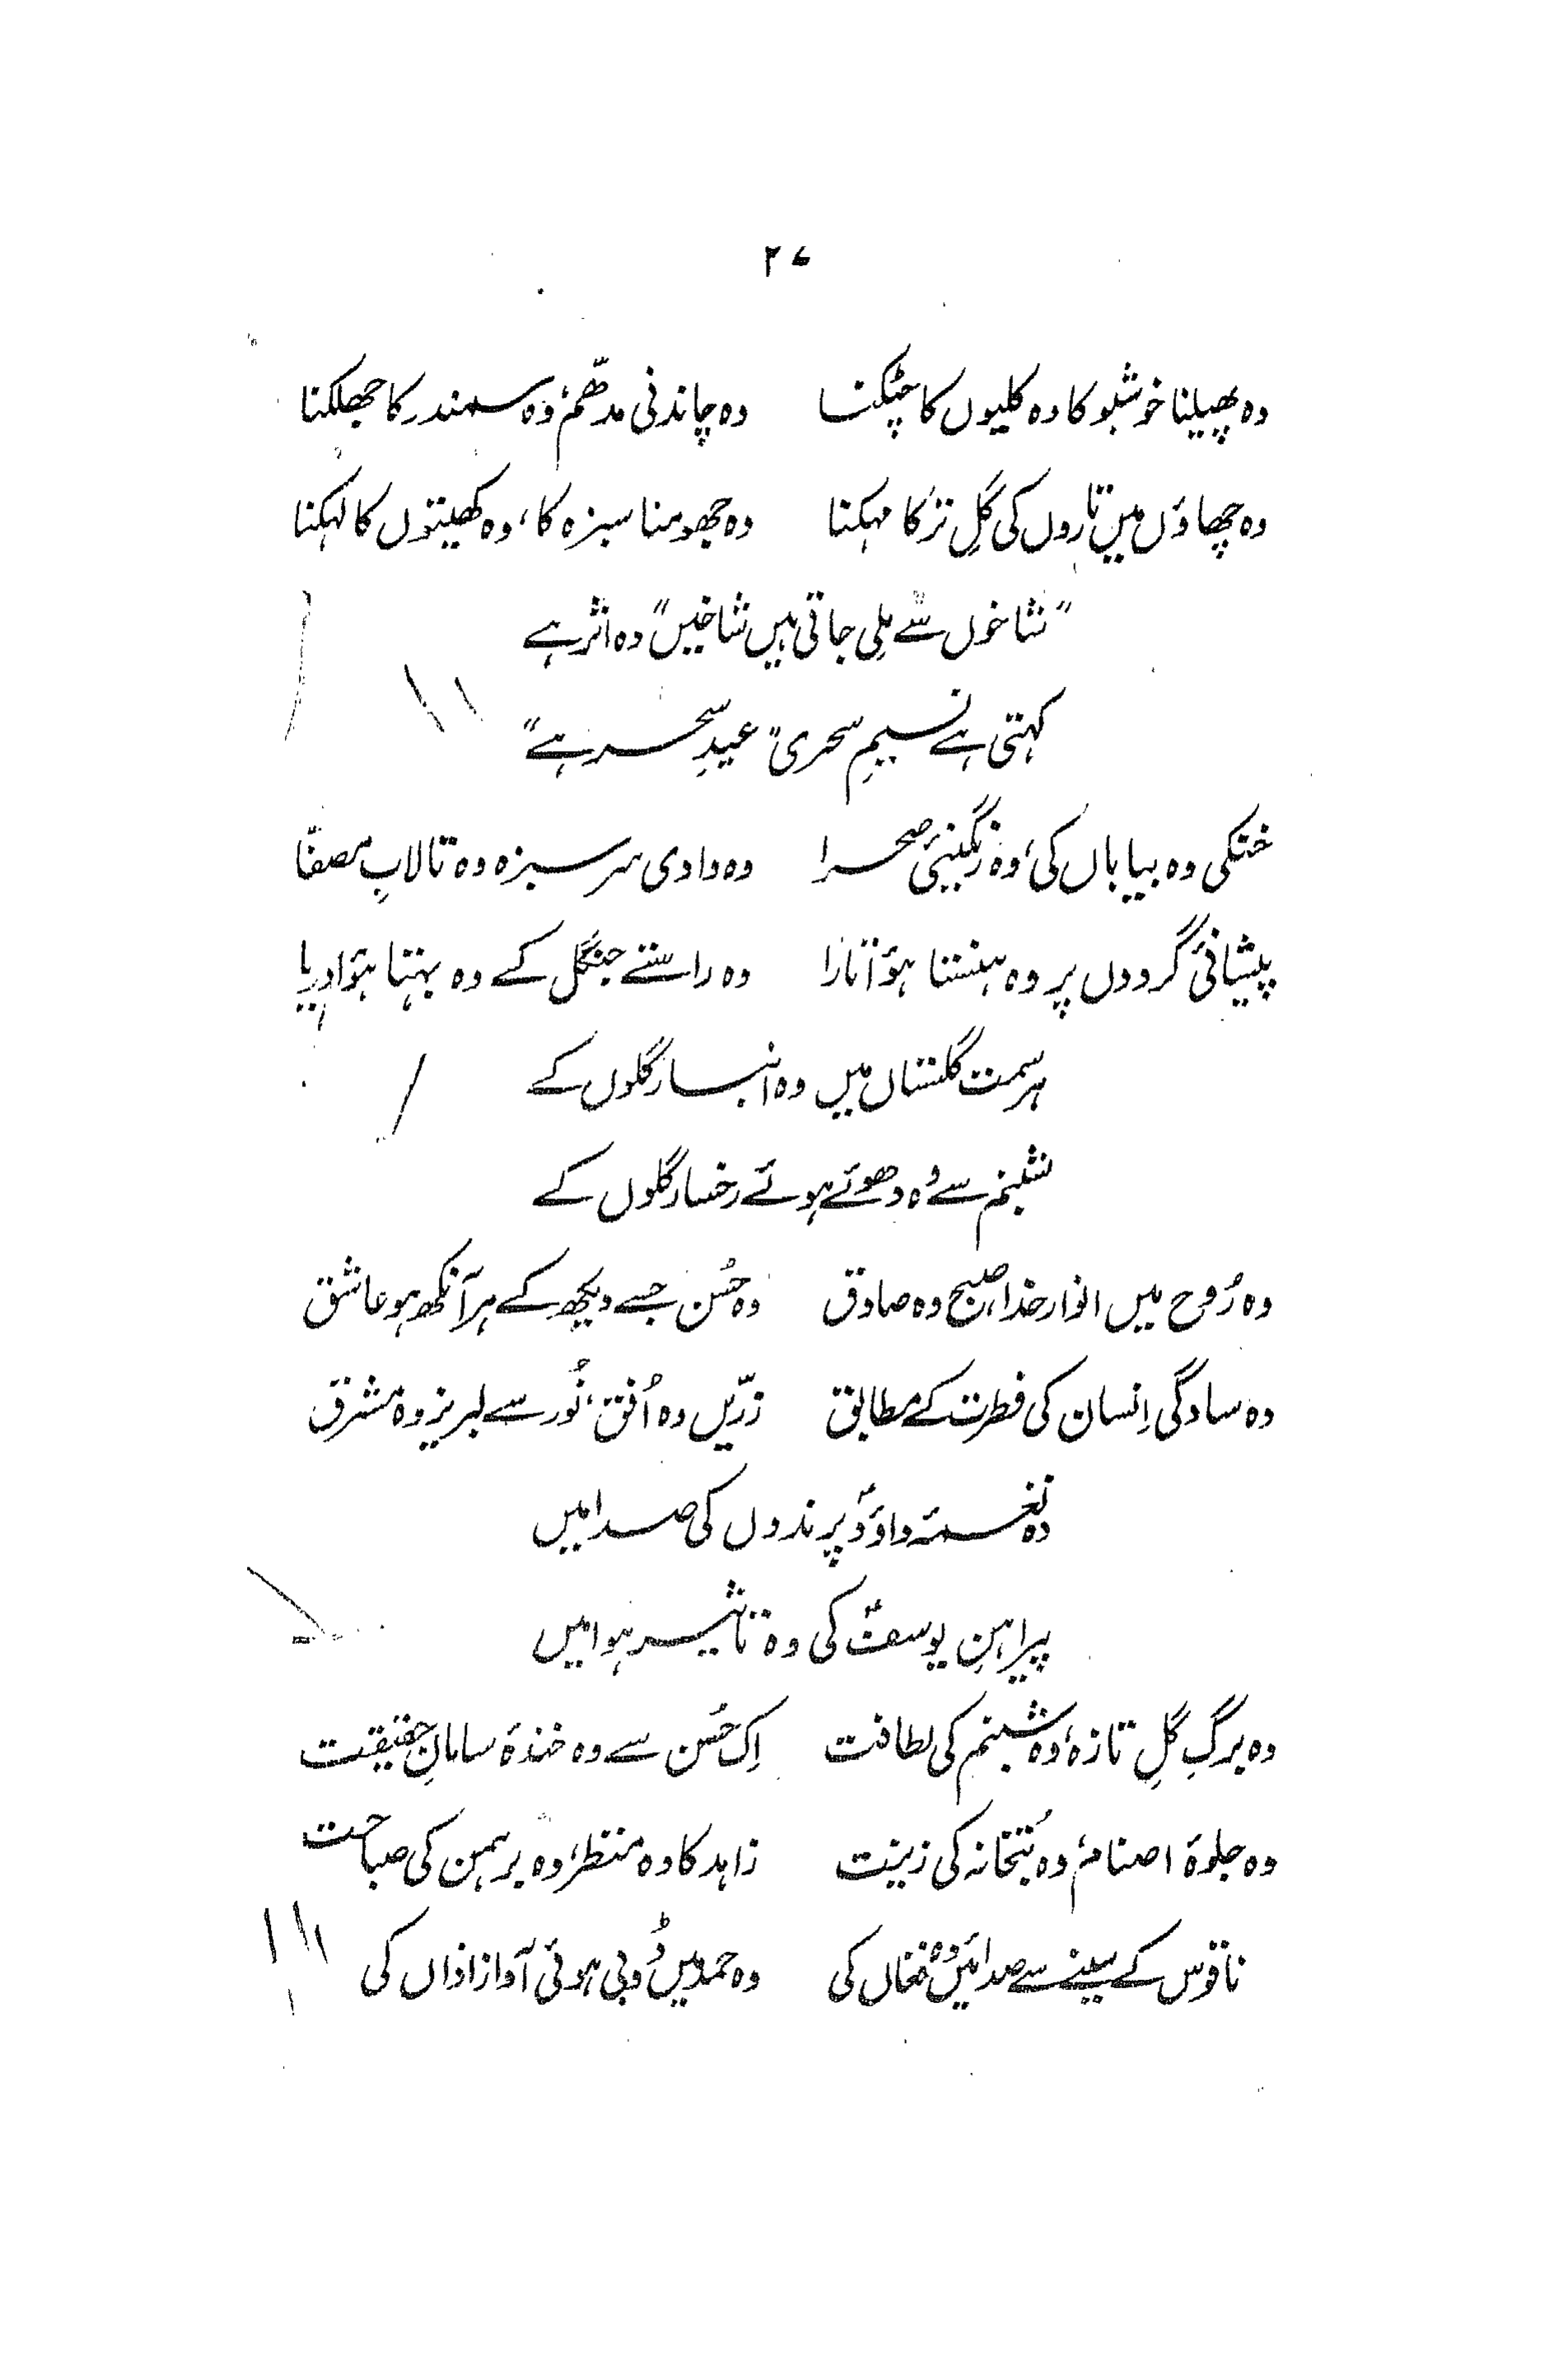 ۲۷
وہ پھیلنا خوشبو کا وہ کلیوں کا چٹکنا    وہ چاندنی مدّھم، وہ سمندر کا جھلکنا
وہ چھاؤں میں تاروں کی گلِ تر کا مہکنا    وہ جھومنا سبزہ کا، وہ کھیتوں کا لہکنا
"شاخوں سے ملی جاتی ہیں شاخیں" وہ اثر ہے
کہتی ہے نسیمِ سحری "عیدِ سحر ہے"
خنکی وہ بیاباں کی، وہ رنگینیٔ صحرا    وہ وادی سرسبز وہ تالابِ مصفّا
پیشانیٔ گردوں پر وہ ہنستا ہؤا تارا    وہ راستے جنگل کے وہ بہتا ہؤا دریا
ہر سمت گلستاں میں وہ انبار گلوں کے
شبنم سے وُہ دھوئے ہوئے رخسار گلوں کے
وہ رُوح میں انوار خدا، صبح وہ صادق    وہ حُسن جسے دیکھ کے ہر آنکھ ہو عاشق
وہ سادگی اِنسان کی فطرت کے مطابق    زرّیں وہ اُفق، نُور سے لبریز وہ مشرق
وہ نغمۂ داؤدؑ پرندوں کی صدا میں
پیراہنِ یوسفؑ کی وہ تاثیر ہوا میں
وہ برگِ گلِ تازہ، وہ شبنم کی لطافت    اِک حُسن سے وہ خندۂ سامانِ حقیقت
وہ جلوۂ اصنام، وہ بُتخانہ کی زینت    زاہد کا وہ منظر، وہ برہمن کی صباحت
ناقوس کے سینے سے صدائیں وہ فغاں کی    وہ حمد میں ڈوبی ہوئی آواز اذاں کی